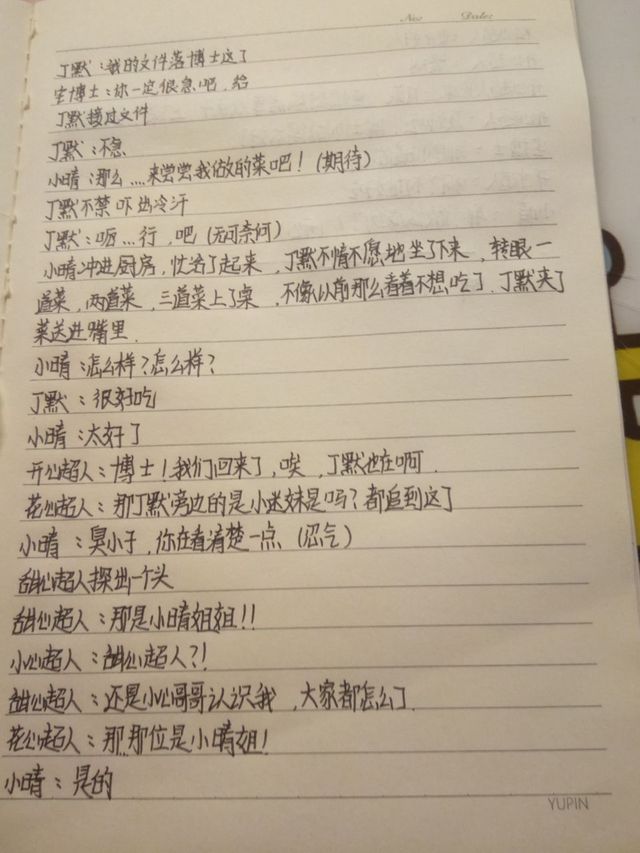 No: Date:
丁默:我的文件落博士这了
宅博士:你一定很急吧,给
丁默接过文件
丁默:不急
小晴:那么....来尝尝我做的菜吧!(期待)
丁默不禁吓出冷汗
丁默:呃...行,吧(无可奈何)
小晴冲进厨房,忙活了起来,丁默不情不愿地坐了下来,转眼一
道菜,两道菜,三道菜上了桌,不像以前那么看着不想吃了.丁默夹了
菜送进嘴里.
小晴:怎么样?怎么样?
丁默:很好吃
小晴:太好了
开心超人:博士!我们回来了,唉,丁默也在啊.
花心超人:那丁默旁边的是小迷妹是吗?都追到这了
小晴:臭小子,你在看清楚一点(忍气)
甜心超人探出一个头
甜心超人:那是小晴姐姐!!
小心超人:甜心超人?!
甜心超人:还是小心哥哥认识我,大家都怎么了.
花心超人:那.那位是小晴姐!
小晴:是的
YUPIN